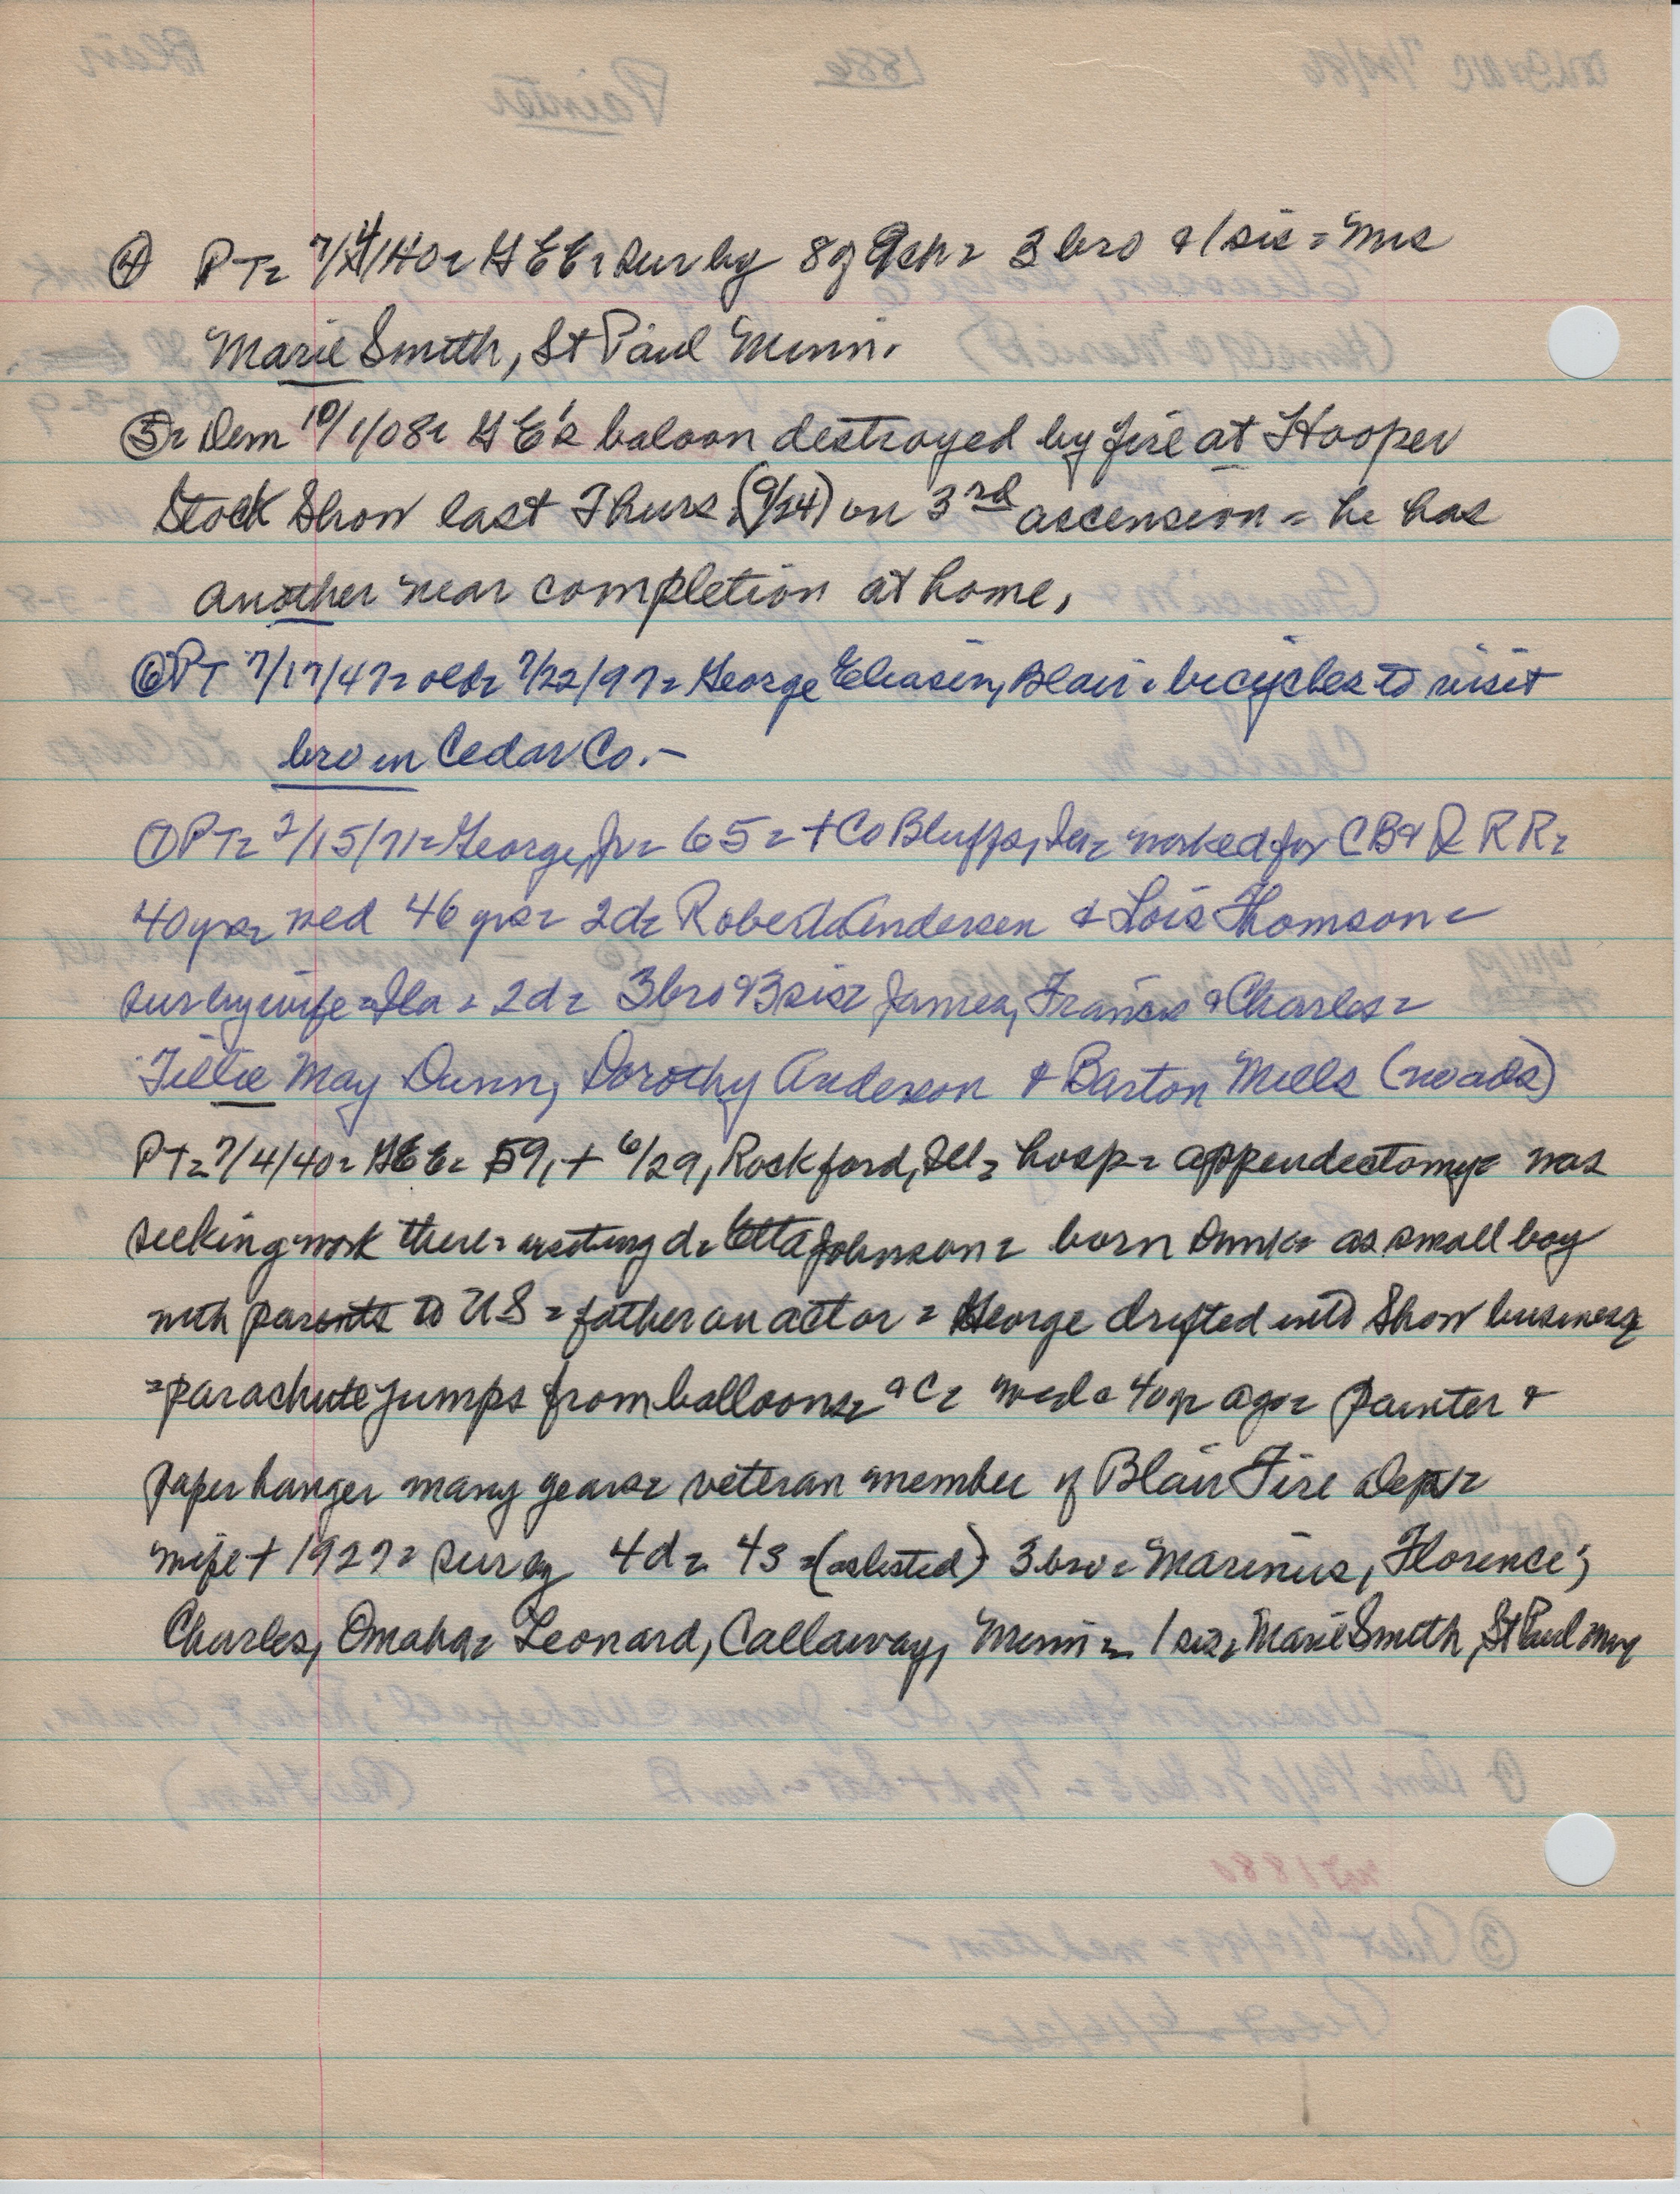 ④ PT= 7/4/40= GEE= sur by 8 of 9 ch= 3 bro & 1 sis= Mrs
Marie Smith, St Paul Minn.
⑤= Dem 10/1/08= GE's baloon destroyed by fire at Hooper
Stock Show last Thurs (9/24) on 3rd ascension= he has
another near completion at home,
⑥ PT 7/17/47= old= 7/22/97= George Eliasen, Blair= bicycles to visit
bro in Cedar Co.-
⑦ PT= 2/15/71= George, Jr= 65= + Co Bluffs, Ia= worked for CB& Q RR=
40 yrs= wed 46 yrs= 2d= Roberta Andersen & Lois Thomson=
sur by wife= Ila= 2d= 3 bro & 3 sis= James, Francis & Charles=
Tillie May Dunn, Dorothy Anderson & Barton Mills (no ads)
PT= 7/4/40= GEE= 59, + 6/29, Rockford, Ill= hosp= appendectomy= was
seeking work there= visiting d= Etta Johnson= born Dmk= as small boy
with parents to US= father an actor= George drifted into Show business
= parachute jumps from balloons= &C= wed= 40 yr ago= painter &
paper hanger many years= veteran member of Blair Fire Dept=
wife + 1927= sur by 4d= 4s= (as listed) 3 bro= Marinus, Florence;
Charles, Omaha= Leonard, Callaway, Minn= 1 sis= Marie Smith, St Paul